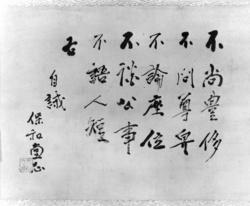 不尚豊侈
不問尊卑
不論座位
不談公事
不語人短
右
自誡
保和會忘